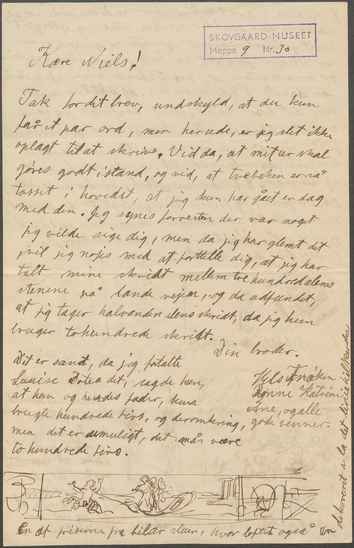 SKOVGAARD-MUSEET
Mappe 9 Nr. 30
Kære Niels!
Tak for dit brev, undskyld, at du kun
får et par ord, men herude, er jeg slet ikke
oplagt til at skrive. Vid da, at mit ur skal
gøres godt i stand, og vid, at
tosset i hovedet, at jeg kun har gået en dag
med den. Jeg synes forresten der var noget
jeg vilde sige dig, men da jeg har glemt det
vil jeg nøjes med at fortælle dig, at jeg har
talt mine skridt mellem to hundred alens
stenene på lande vejen, og da udfundet,
at jeg tager halvanden alens skridt, da jeg kun
bruger to hundrede skridt.
Din broder.
Det er sandt, da jeg fortalte
Louise det, sagde hun,
at hun og hendes fader, kun
brugte hundrede, og deromkring,
men det er umuligt, det må være
to hundrede
Hils Frøken
Rønne Katrine
og alle
gode venner.
En af friserne fra, hvor loftet også er
dekoreret a la det